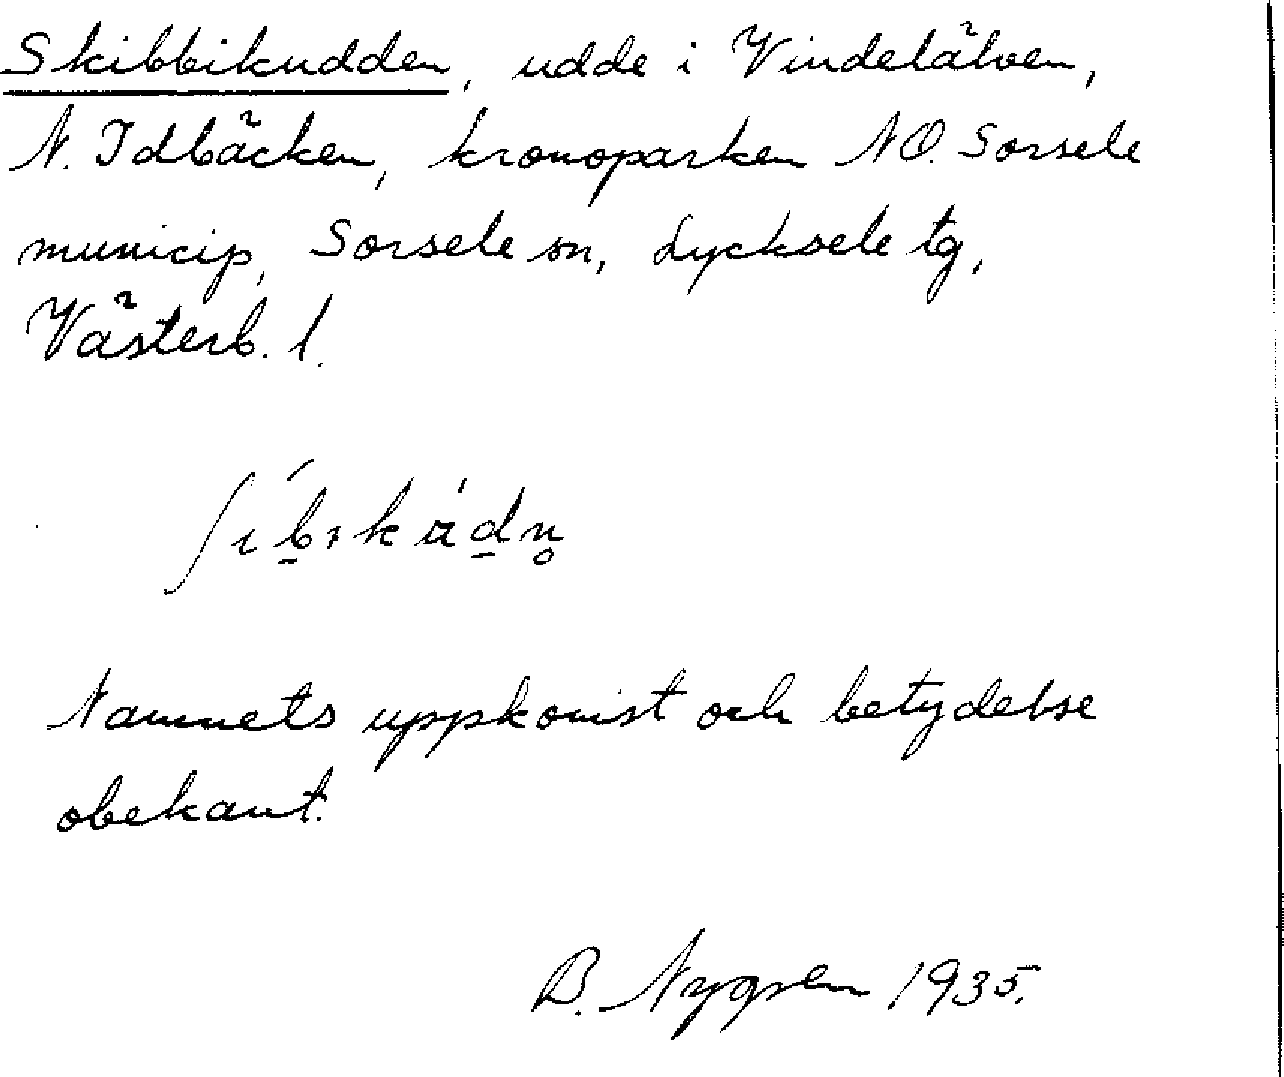 Skibbikudden, udde i Vindelälven,
N. Idbäcken, kronoparken NO. Sorsele
municip, Sorsele sn, Lycksele tg,
Västerb. l.
Namnets uppkomst och betydelse
obekant.
B. Nygren 1935.